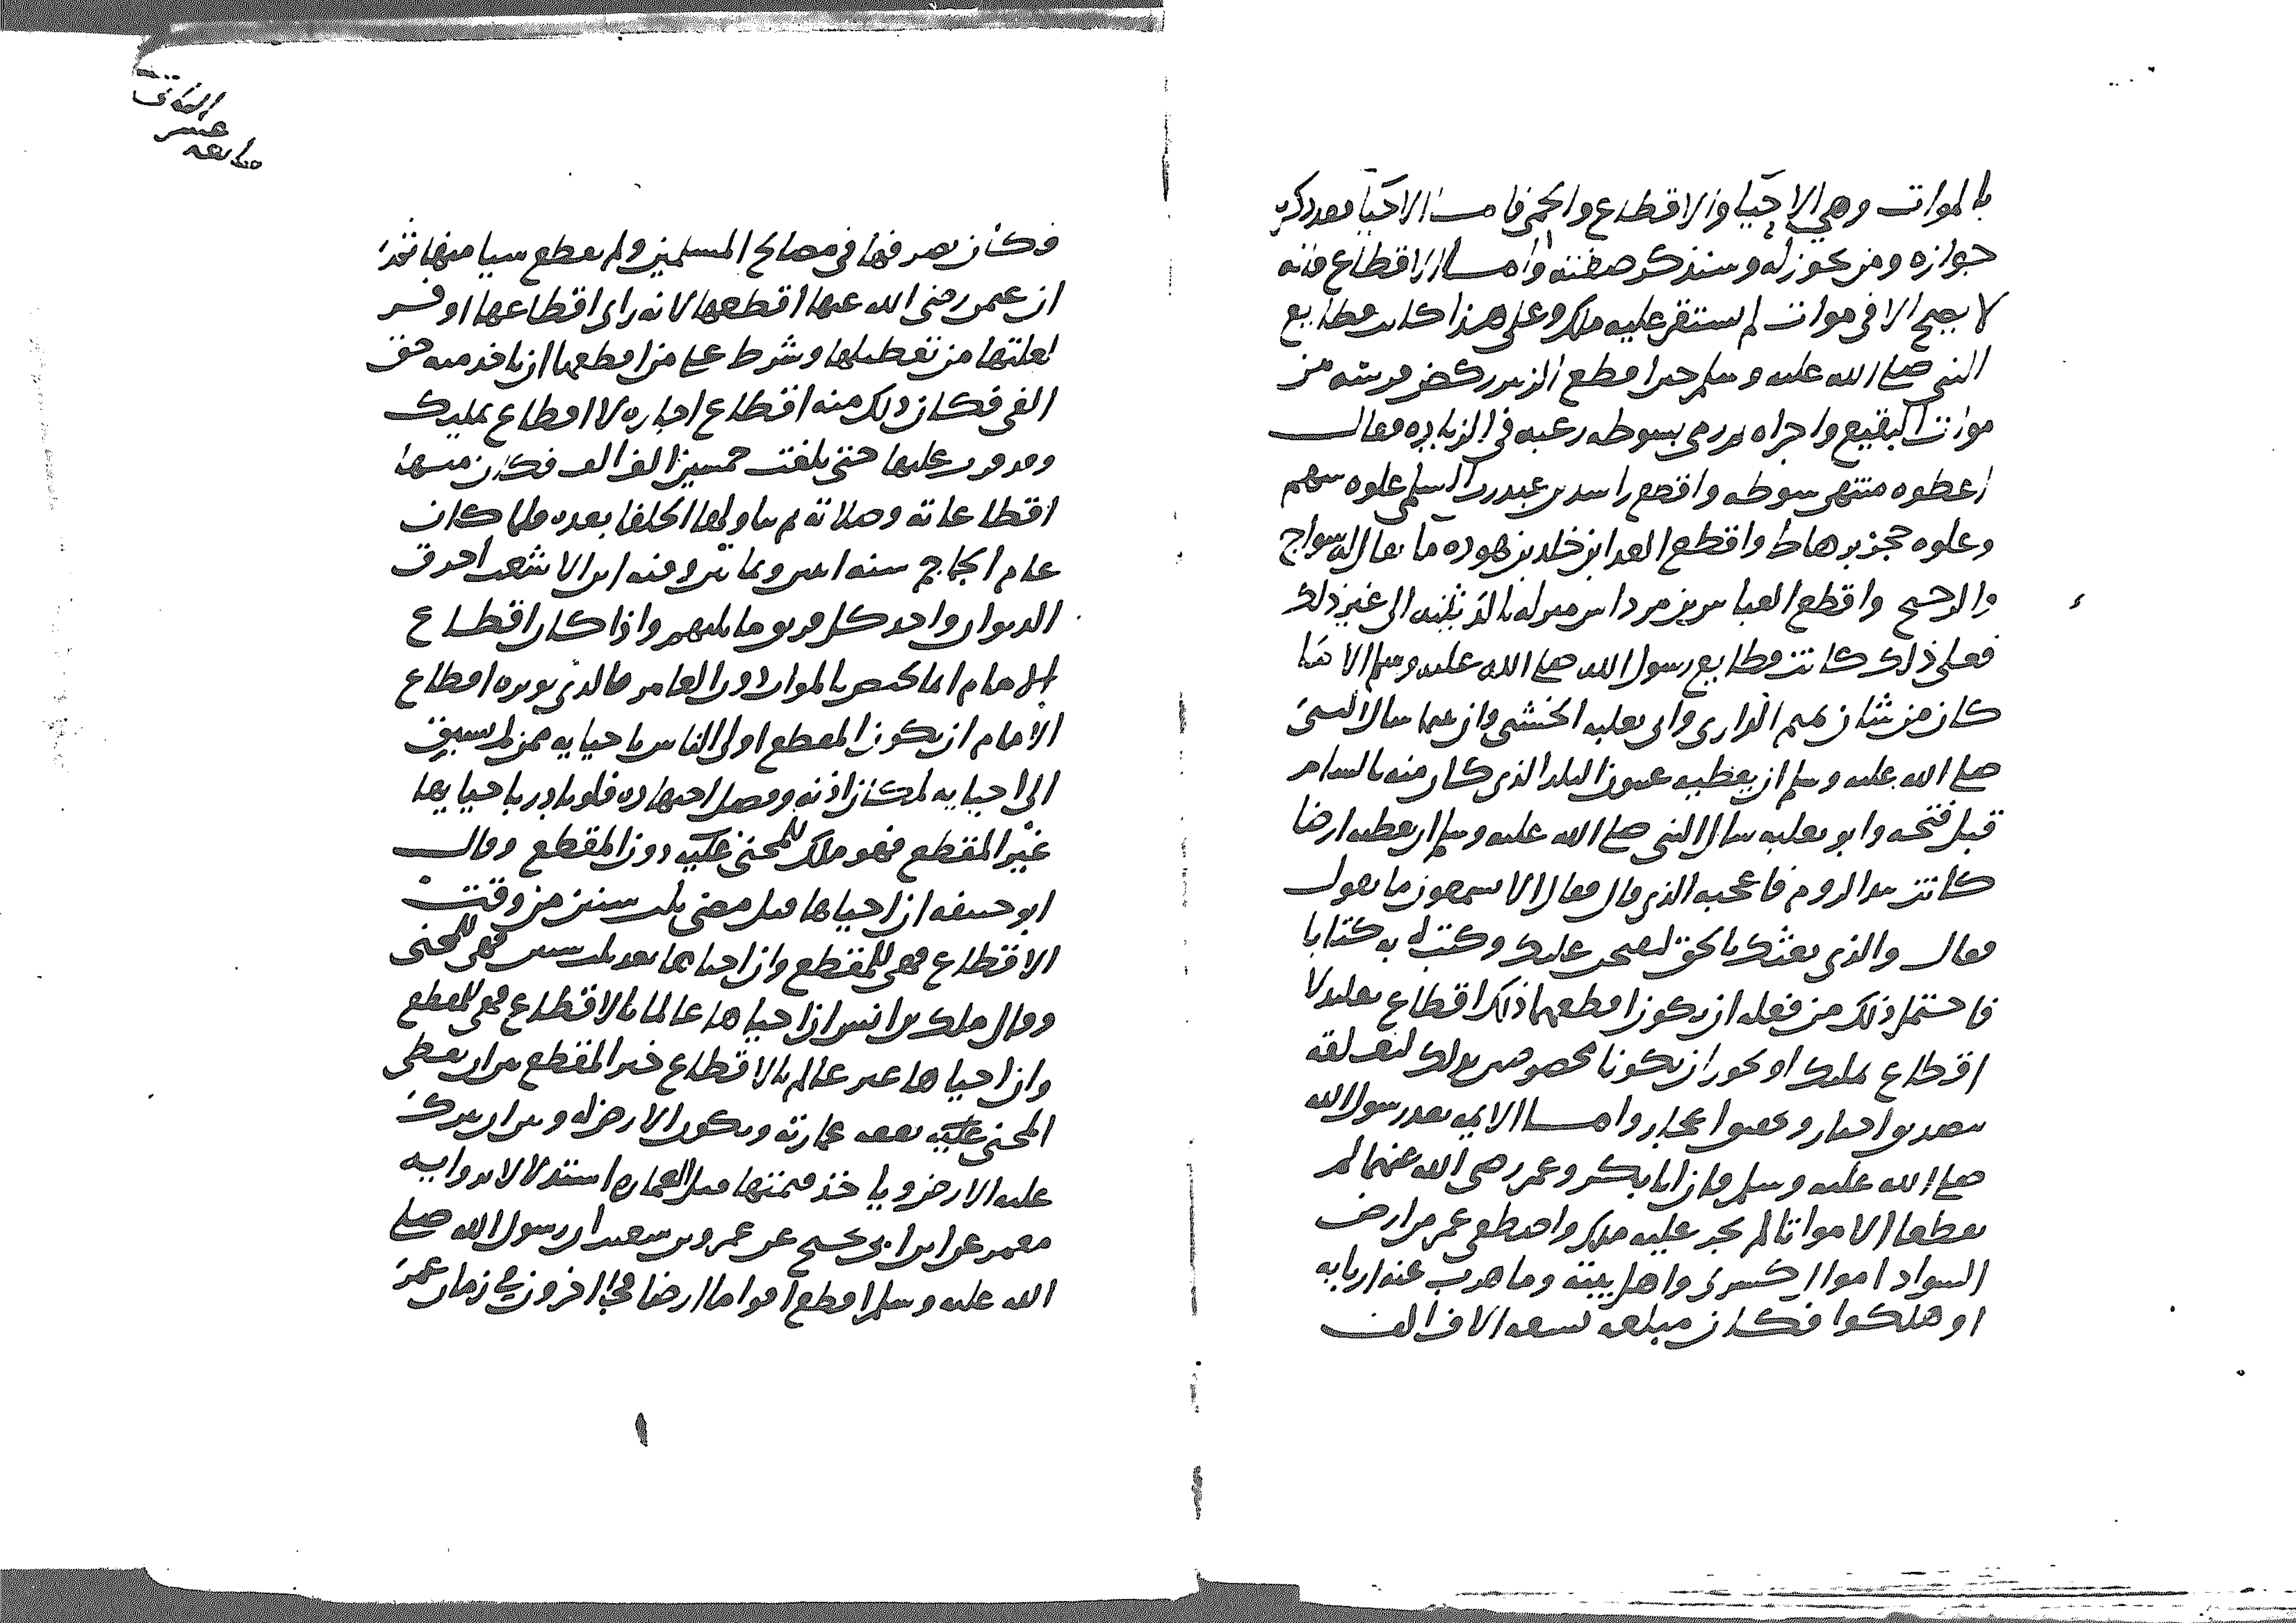 بالموات وهي الاحيا والاقطاع والحمى فامـا الاحيا بعد ذكر
جوازه ومن يجوز له وسنذكر صفته وامـا الاقطاع فانه
لا يصح الا في موات لم يستقر عليه ملك وعلى هذا كانت قطايع
النبي صلى الله عليه وسلم حين اقطع الزبير ركض فرسه من
موات البقيع واجراه ثم رمى بسوطه رغبه في الزياده فقال
اعطوه منتهى سوطه واقطع راشد بن عبد رب السلمي غلوه سهم
وغلوه حجر برهاط واقطع العدا بن خلد بن هوده ما يقال له سواج
والرخيح واقطع العباس بن مرداس منزله بالدثينه الى غير ذلك
فعلى ذلك كانت قطايع رسول الله صلى الله عليه وسلم الا ما
كان من شان تميم الداري وابي ثعلبه الخشني وان تميما سال النبي
صلى الله عليه وسلم ان يعطيه عيون البلد الذي كان منه بالشام
قبل فتحه وابو ثعلبه سال النبي صلى الله عليه وسلم ان يعطيه ارضا
كانت بيد الروم فاعجبه الذي قال فقال الا تسمعون ما يقول
فقال والذي بعثك بالحق ليفتحن عليك وكتب له به كتابا
فاحتمل ذلك من فعله ان يكون اقطعهما ذلك اقطاع تقليد لا
اقطاع تمليك او يجوز ان يكونا مخصوصين بذلك لتعلقه
بتصديق اخبار وتحقيق اعجاز وامـا الايمه بعد رسول الله
صلى الله عليه وسلم فان ابا بكر وعمر رضي الله عنهما لم
يقطعا الا مواتا لم يجر عليه ملك واصطفى عمر من ارض
السواد اموال كسرى واهل بيته وما هرب عنه اربابه
او هلكوا فكان مبلغه تسعه الاف الف
القانى
عشر
سابعه
فكان يصرفها في مصالح المسلمين ولم يقطع شيا منها ثم
ان عثمن رضي الله عنه اقطعها لانه راى اقطاعها اوفر
لغلتها من تعطيلها وشرط على من اقطعها ان ياخذ منه حق
الفي فكان ذلك منه اقطاع اجاره لا اقطاع تمليك
وتوفرت غلتها حتى بلغت خمسين الف الف فكان منها
اقطاعاته وصلاته ثم تناولها الخلفا بعده فلما كان
عام الجماجم سنه اثنين وثمانين وفتنه ابن الاشعث احرق
الديوان واخذ كل قوم ما يليهم واذا كان اقطـاع
الامام انما يختص بالموات دون العامر فالذي يوثره اقطاع
الامام ان يكون المقطع اولى الناس باحيايه ممن لم يسبق
الى احيايه لمكان اذنه وفضل اجتهاده فلو بادر باحيايها
غير المقطع فهو ملك للمحيي عليه دون المقطع وقال
ابو حنيفه ان احياها قبل مضي ثلث سنين من وقت
الاقطاع فهي للمقطع وان احياها بعد ثلث سنين فهي للمحيي
وقال ملك بن انس ان احياها عالما بالاقطاع فهي للمقطع
وان احياها غير عالم بالاقطاع خير المقطع بين ان يعطي
المحيي عليه نفقه عمارته وتكون الارض له وبين ان يترك
عليه الارض وياخذ قيمتها قبل العماره استدلالا بروايه
معمر عن ابن ابي نجيح عن عمرو بن شعيب ان رسول الله صلى
الله عليه وسلم اقطع اقواما ارضا فجا اخرون في زمان عمر
١